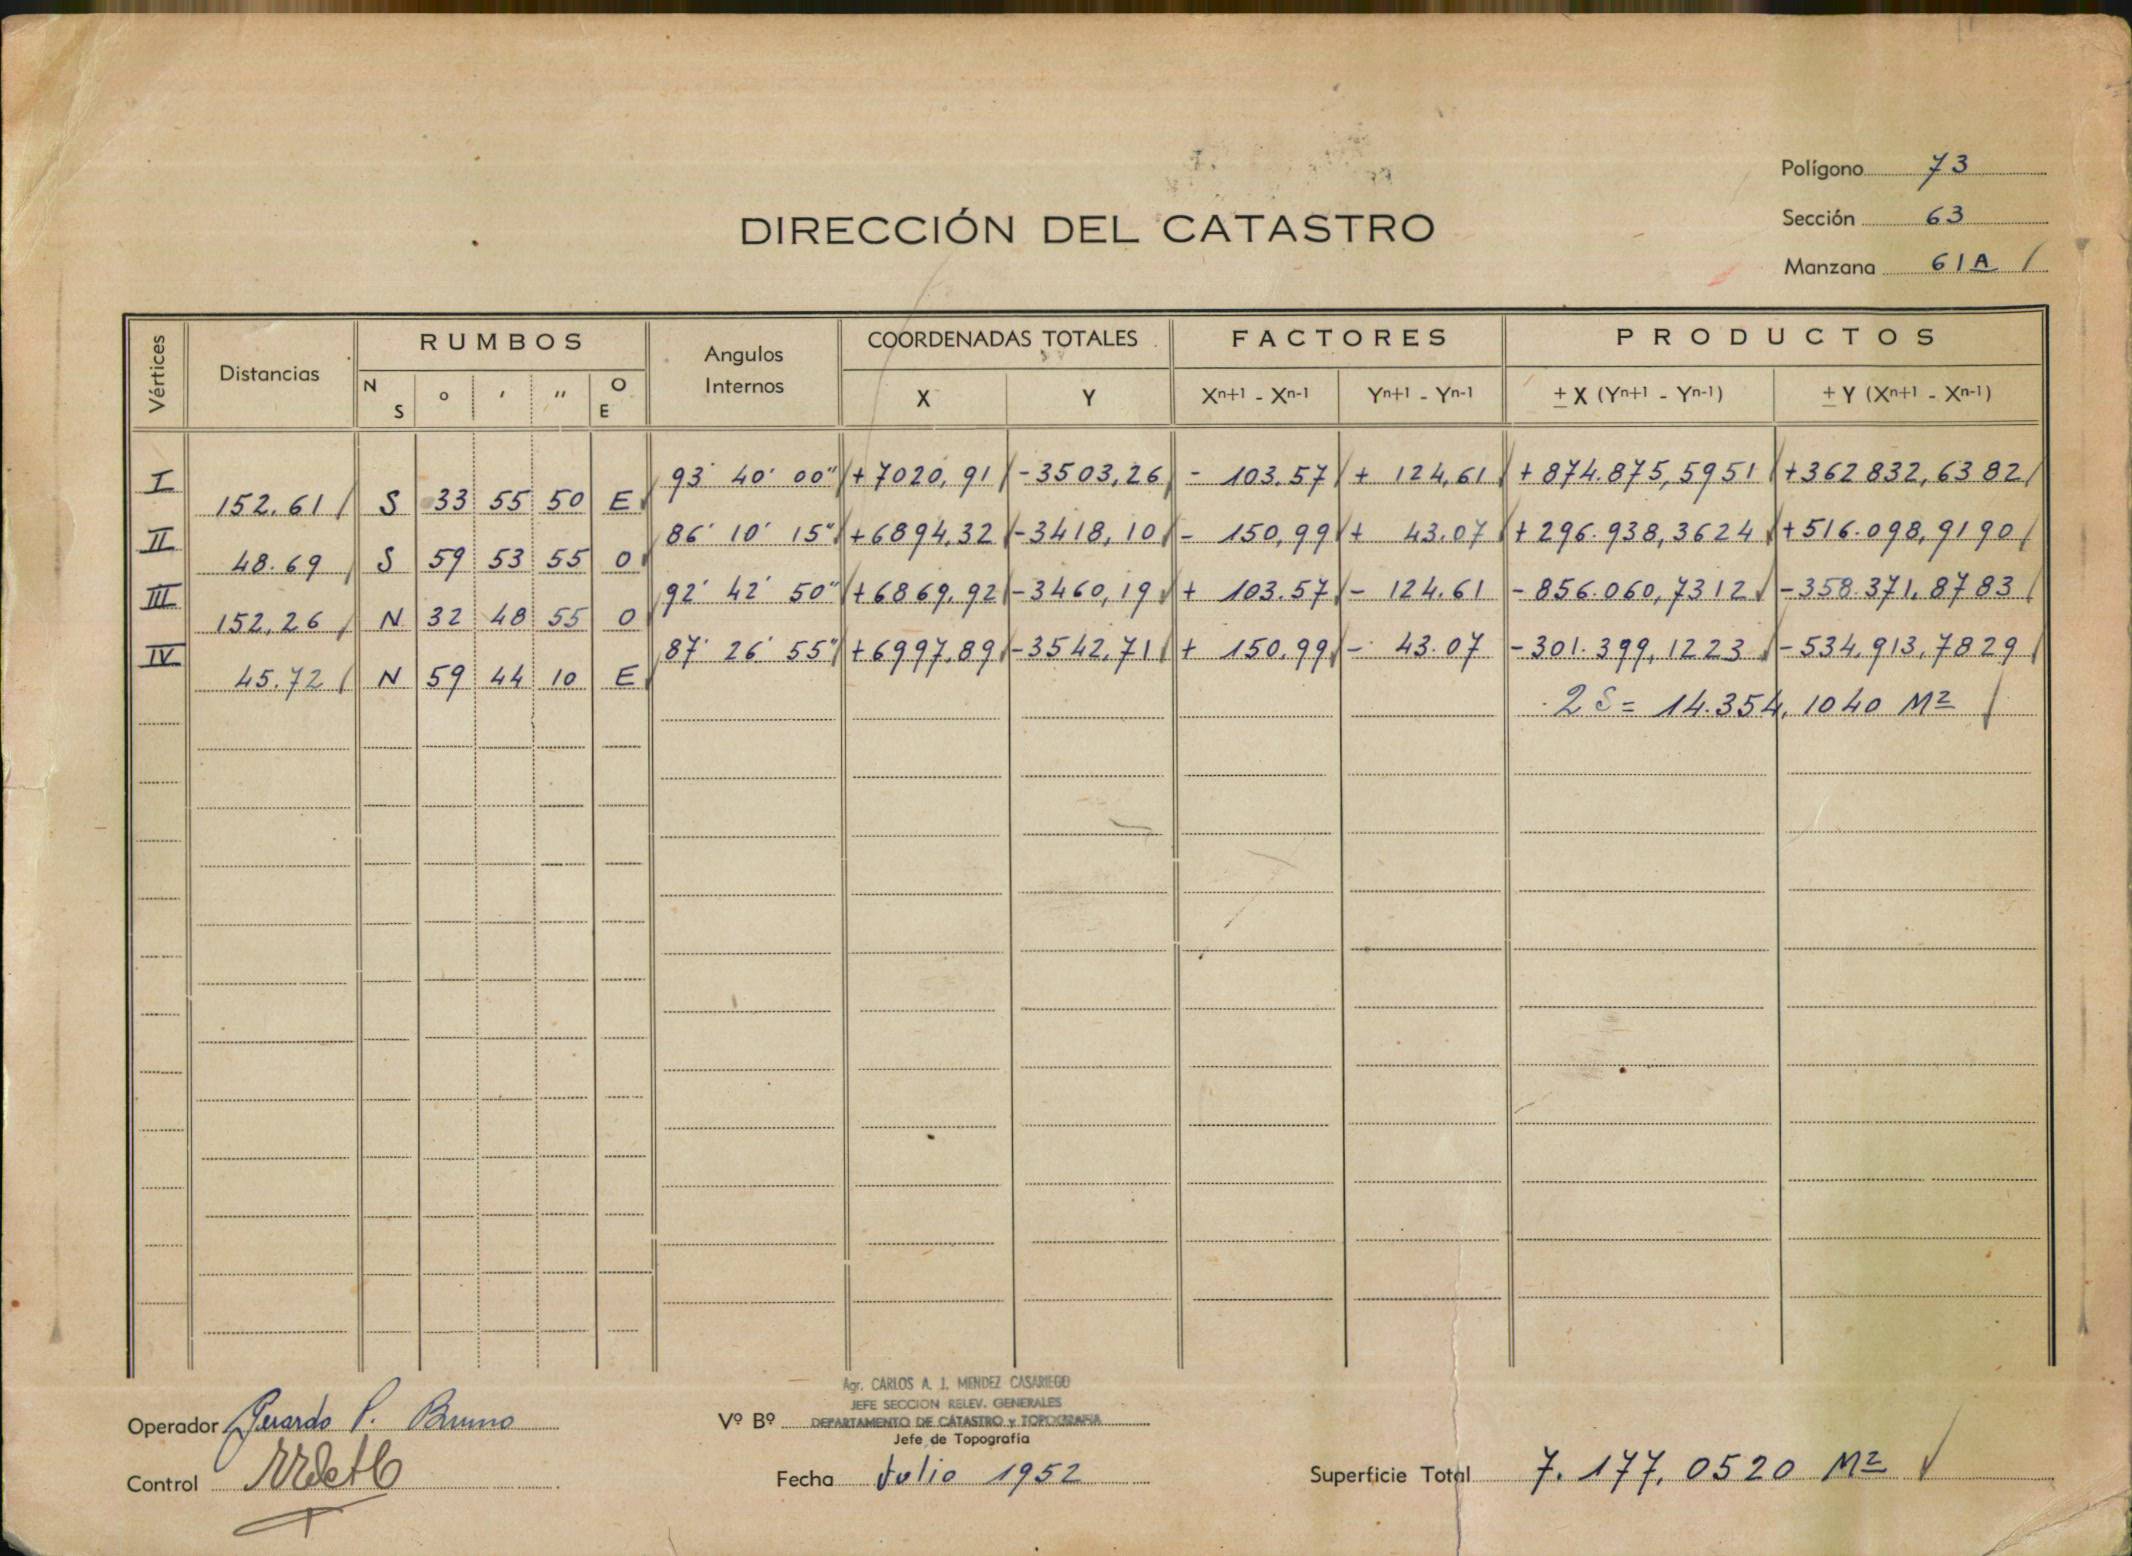 Polígono 73
Sección 63
DIRECCIÓN DEL CATASTRO
Manzana 61A
Vértices Distancias RUMBOS Angulos Internos COORDENADAS TOTALES FACTORES PRODUCTOS
N S ° ' " O E X Y Xn+1 - Xn-1 Yn+1 - Yn-1 ± X (Yn+1 - Yn-1) ± Y (Xn+1 - Xn-1)
I 93° 40' 00" +7020,91 -3503,26 - 103.57 + 124,61 +874.875,5951 +362832,6382
152.61 S 33 55 50 E
II 86° 10' 15" +6894,32 -3418,10 - 150,99 + 43.07 +296.938,3624 +516.098,9190
48.69 S 59 53 55 O
III 92° 42' 50" +6869,92 -3460,19 + 103.57 - 124.61 -856.060,7312 -358.371,8783
152,26 N 32 48 55 O
IV 87° 26' 55" +6997,89 -3542,71 + 150,99 - 43.07 -301.399,1223 -534,913,7829
45.72 N 59 44 10 E
2S = 14.354,1040 M²
Agr. CARLOS A. J. MENDEZ CASARIEGO
JEFE SECCION RELEV. GENERALES
Operador Gerardo P. Bruno Vº Bº DEPARTAMENTO DE CATASTRO y TOPOGRAFIA
Jefe de Topografía
Control Fecha Julio 1952 Superficie Total 7.177,0520 M²